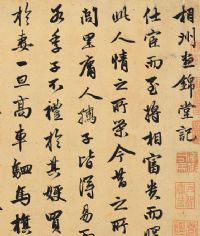 相州昼錦堂記
仕宦而至將相富貴而歸
此人情之所榮今昔之所
閭里庸人孺子皆得易而
若季子不禮於其嫂買
於妻一旦高車駟馬旗